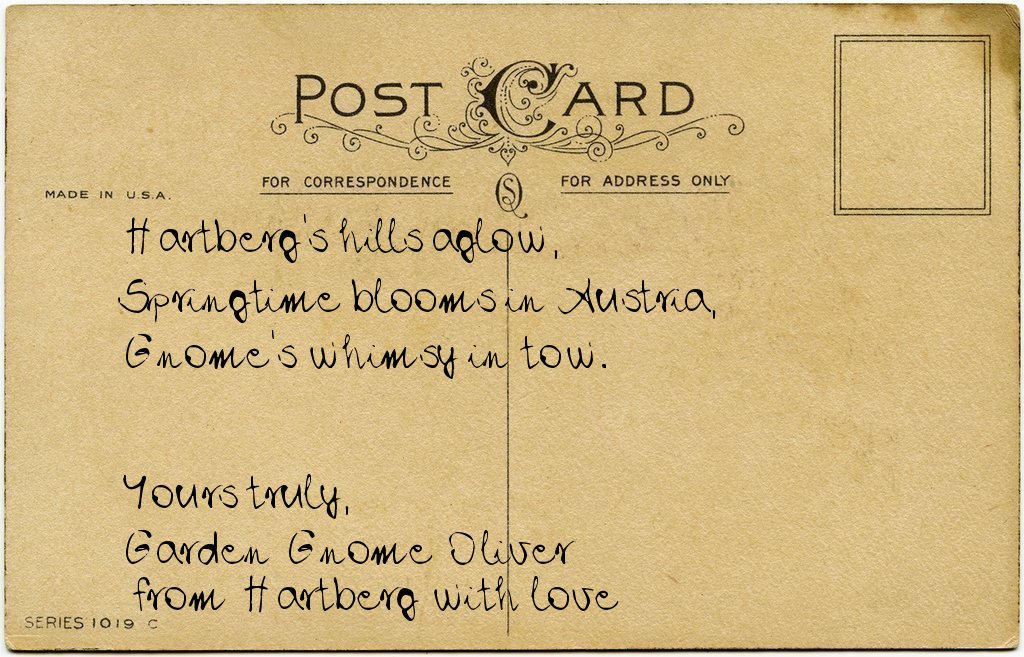 POST CARD
FOR CORRESPONDENCE
FOR ADDRESS ONLY
MADE IN U.S.A.
Hartberg's hills aglow,
Springtime blooms in Austria,
Gnome's whimsy in tow.
Yours truly,
Garden Gnome Oliver
from Hartberg with love
SERIES 1019 C